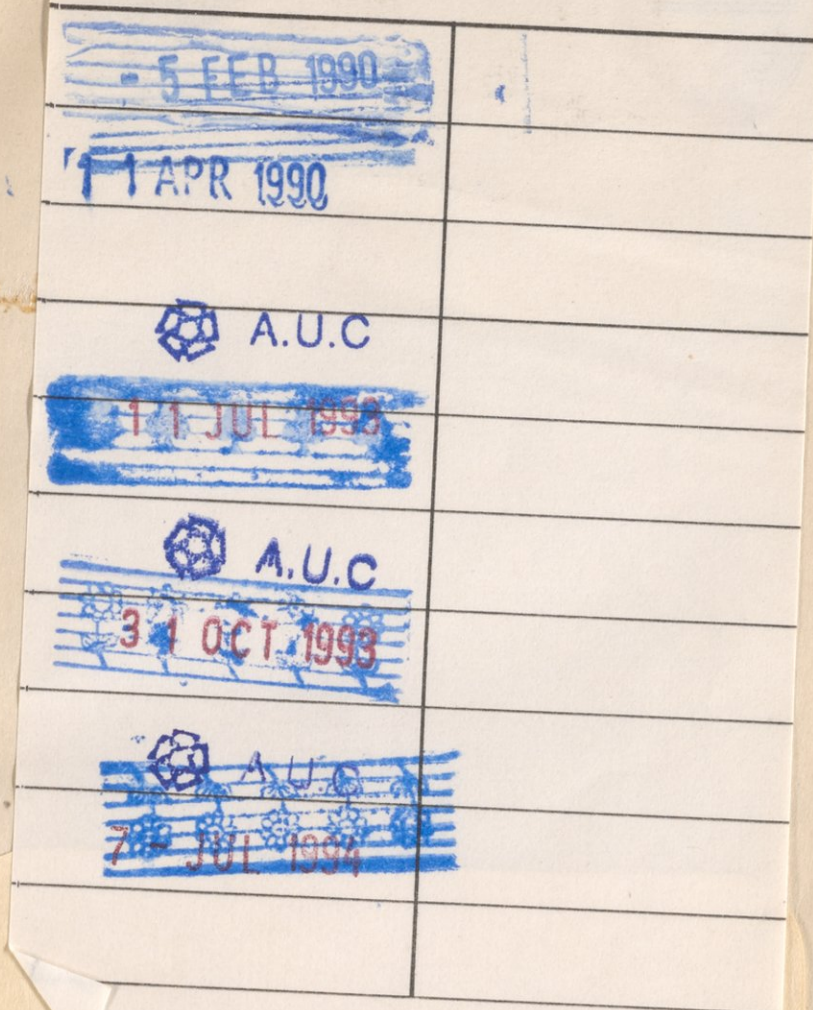 - 5 FEB 1990
11 APR 1990
A.U.C
11 JUL 1993
A.U.C
31 OCT 1993
A U C
7 - JUL 1994